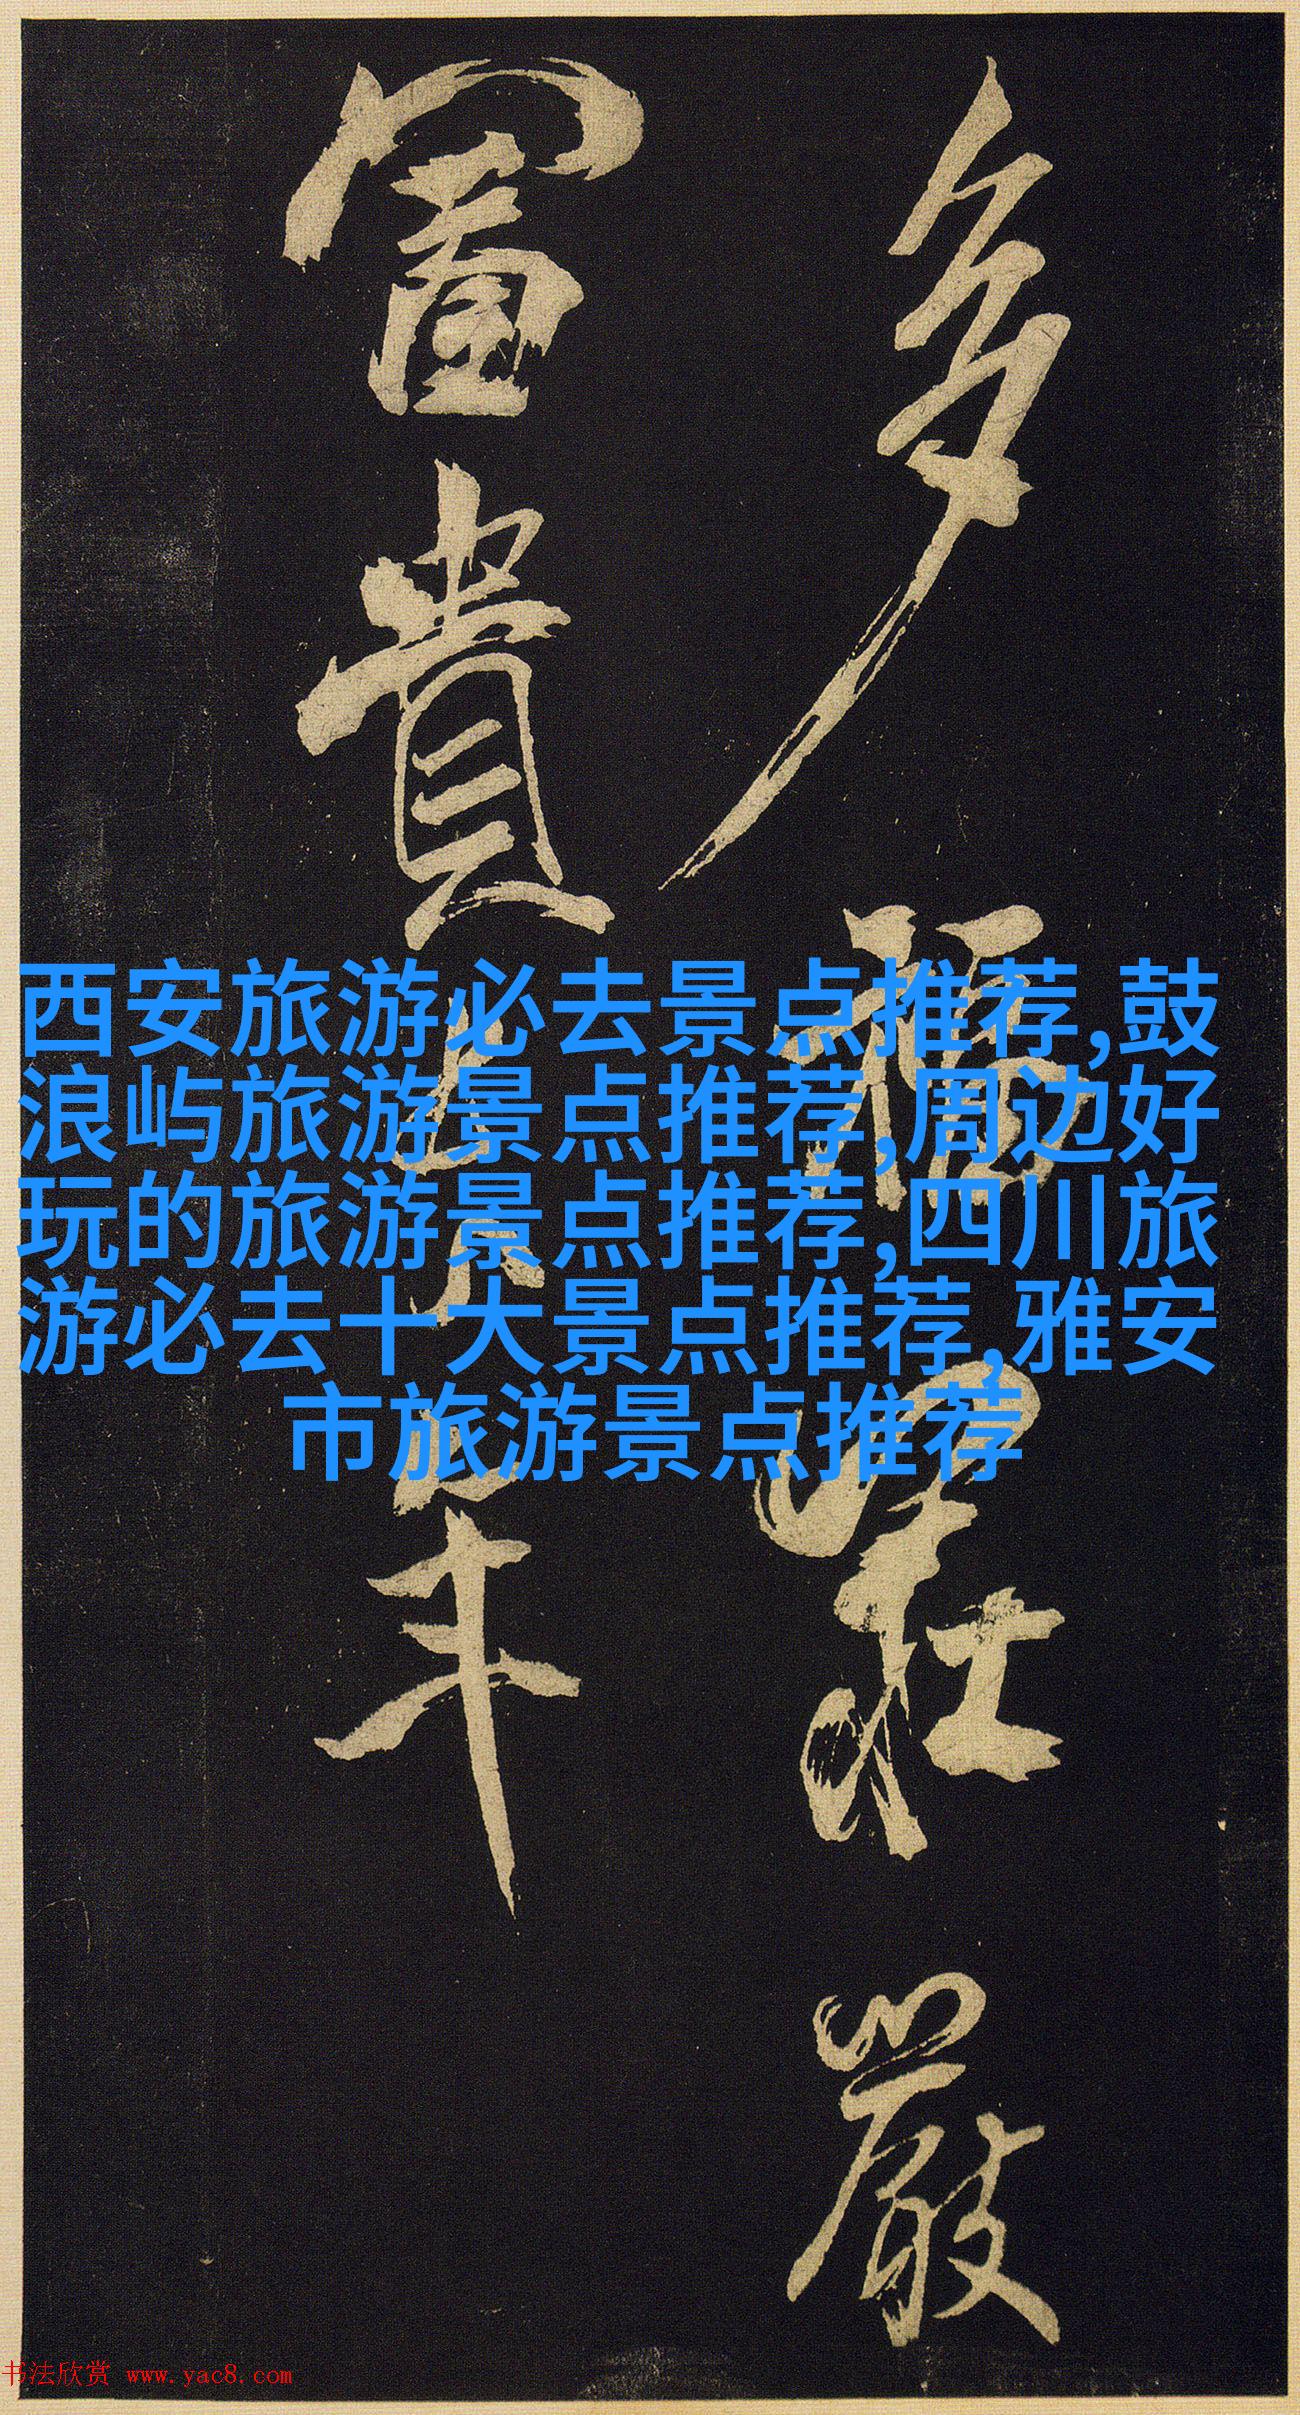 多福莊嚴
富貴
年
西安旅游必去景点推荐,鼓
浪屿旅游景点推荐,周边好
玩的旅游景点推荐,四川旅
游必去十大景点推荐,雅安
市旅游景点推荐
书法欣赏 www.yac8.com